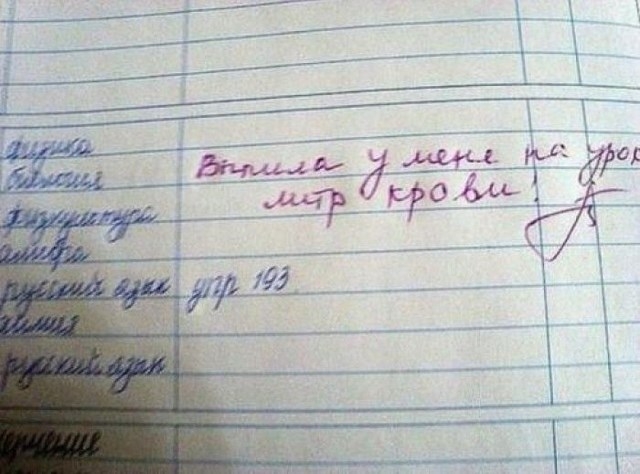 физика
Выпила у мене на урок
биология
литр крови!
физкультура
алгебра
русский язык упр 193
химия
русский язык
черчение